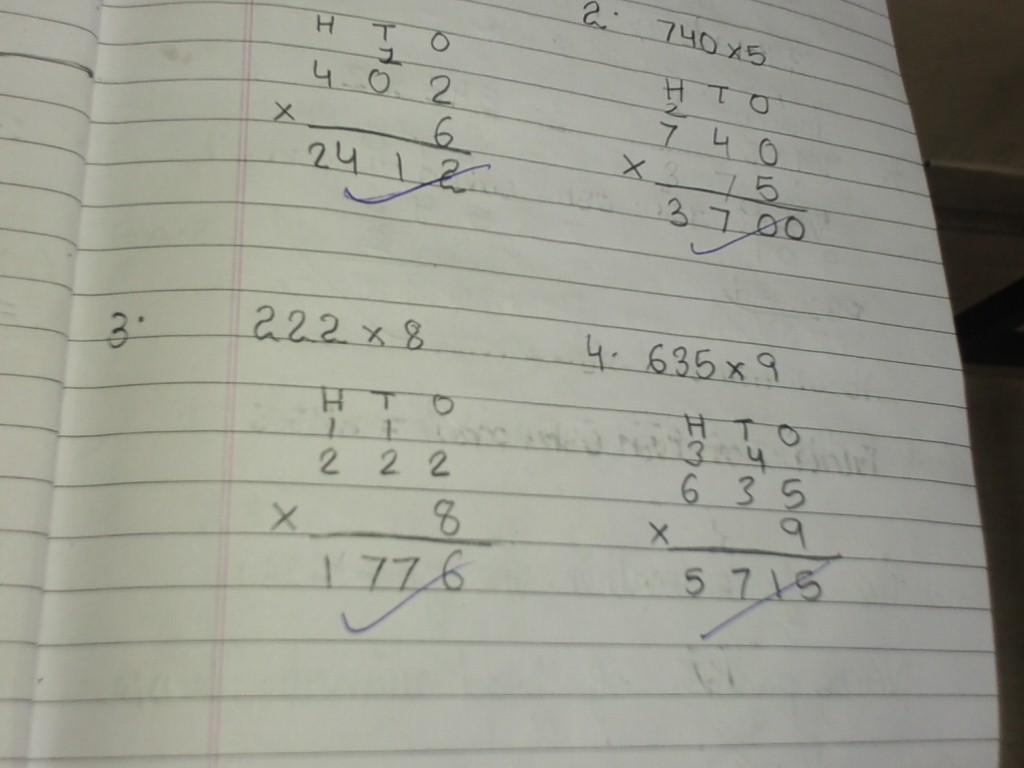 H T O
1
4 0 2
× 6
2 4 1 2
2. 740 × 5
H T O
2
7 4 0
× 5
3 7 0 0
3. 222 × 8
H T O
1 1
2 2 2
× 8
1 7 7 6
4. 635 × 9
H T O
3 4
6 3 5
× 9
5 7 1 5